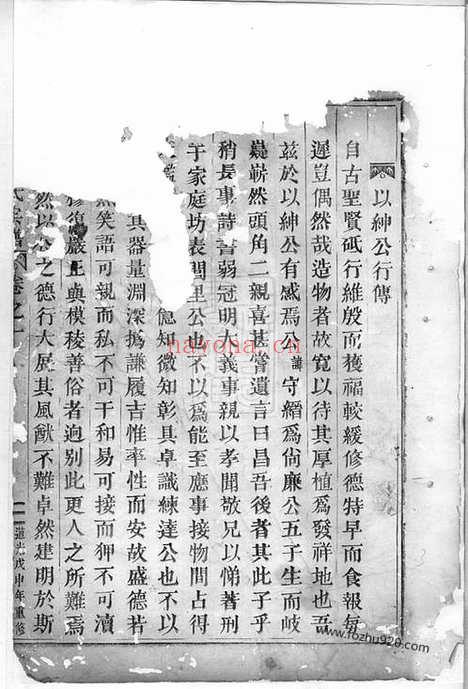 以紳公行傳
自古聖賢砥行維殷而獲福較緩修德特早而食報每
遲豈偶然哉造物者故寬以待其厚植爲發祥地也吾
兹於以紳公有感焉公諱守縉爲尙廉公五子生而岐
嶷嶄然頭角二親喜甚嘗遺言曰昌吾後者其此子乎
稍長事詩書弱冠明大義事親以孝開敬兄以悌著刑
于家庭坊表閭里公也不以爲能至應事接物間占得
億知微知彰具卓識練達公也不以
其器量淵深撝謙履吉惟率性而安故盛德若
笑語可親而私不可干和易可接而狎不可瀆
修復嚴正與模稜善俗者逈别此更人之所難焉
然以公之德行大展其風猷不難卓然建明於斯
氏宗譜 卷之一
道光戊申年重修
havona.cn
www.fozhu920.com